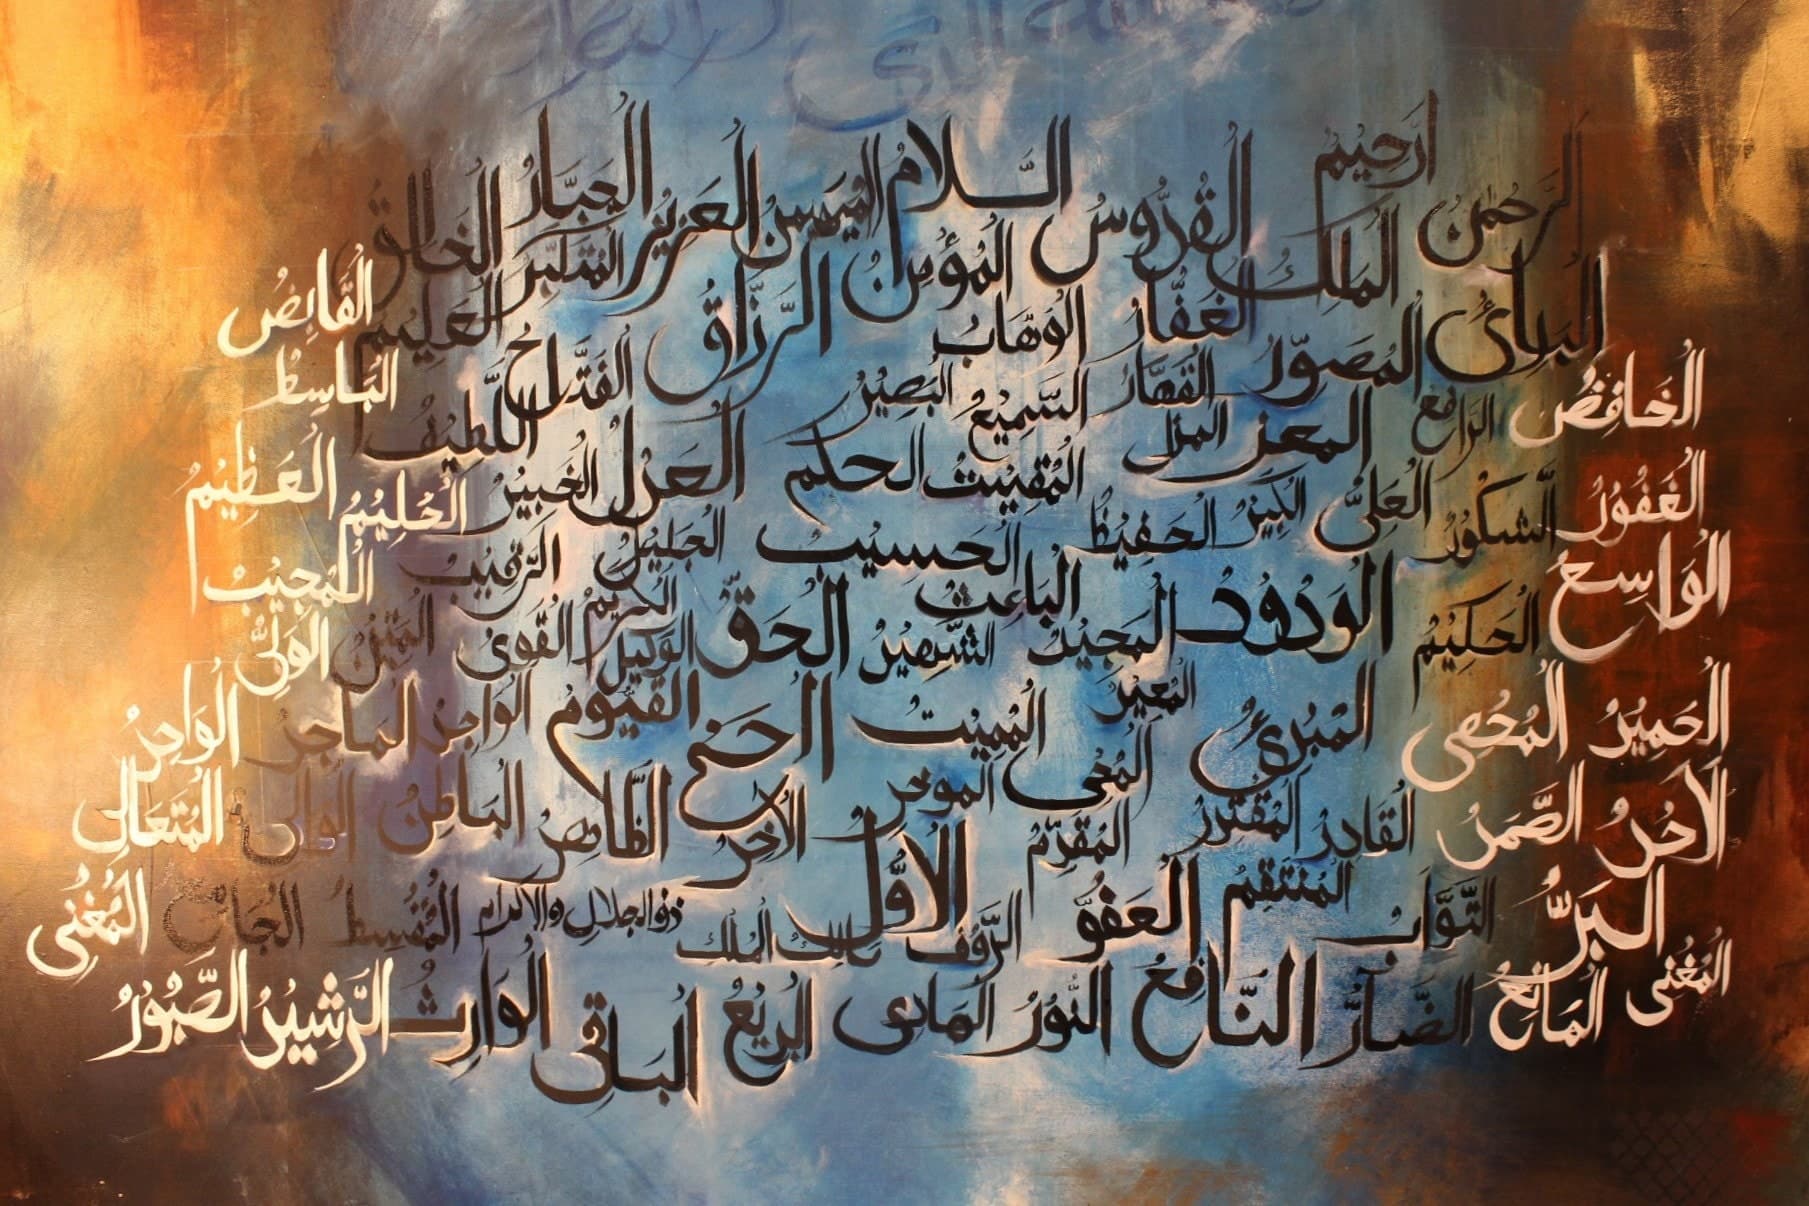 الرَّحْمٰن ارَحِيْم المَلِكُ القُدُّوسُ السَّلَامُ المُؤْمِنُ المُهَيْمِنُ العَزِيْزُ الجَبَّارُ المُتَكَبِّرُ الخَالِقُ
البَارِئُ المُصَوِّرُ الغَفَّارُ القَهَّارُ الوَهَّابُ الرَّزَّاقُ الفَتَّاحُ العَلِيْمُ القَابِضُ البَاسِطُ
الخَافِضُ الرَّافِعُ المعز المذل السَّمِيْعُ البَصِيْرُ الحكم العَدْلُ اللَّطِيْفُ الخَبِيْرُ الحَلِيْمُ العَظِيْمُ
الغَفُوْرُ الشَّكُوْرُ العَلِيُّ الكَبِيْرُ الحَفِيْظُ المُقِيْتُ الحَسِيْبُ الجَلِيْلُ الكَرِيْمُ الرَّقِيْبُ المُجِيْبُ
الوَاسِعُ الحَكِيْمُ الوَدُوْدُ المَجِيْدُ البَاعِثُ الشَّهِيْدُ الحَقُّ الوَكِيْلُ القَوِىُّ المَتِيْنُ الوَلِىُّ
الحَمِيْدُ المُحْصِى المُبْدِئُ المُعِيْدُ المُحْىِ المُمِيْتُ الحَىُّ القَيُّوْمُ الوَاجِدُ المَاجِدُ الوَاحِدُ
الاَحَدُ الصَّمَدُ القَادِرُ المُقْتَدِرُ المُقَدِّمُ الموَخِّرُ الاَوَّلُ الاٰخِرُ الظَّاهِرُ البَاطِنُ الوَالِى المُتَعَالِى
البَرُّ التَّوَّابُ المُنْتَقِمُ العَفُوُّ الرَّؤُفُ مَالِكُ المُلْكِ ذُو الجَلَالِ وَالاِكْرَامِ المُقْسِطُ الجَامِعُ المُغْنِى
المُغْنِى المَانِعُ الضَّارُّ النَّافِعُ النُّوْرُ الهَادِى البَدِيْعُ البَاقِى الوَارِثُ الرَّشِيْدُ الصَّبُوْرُ